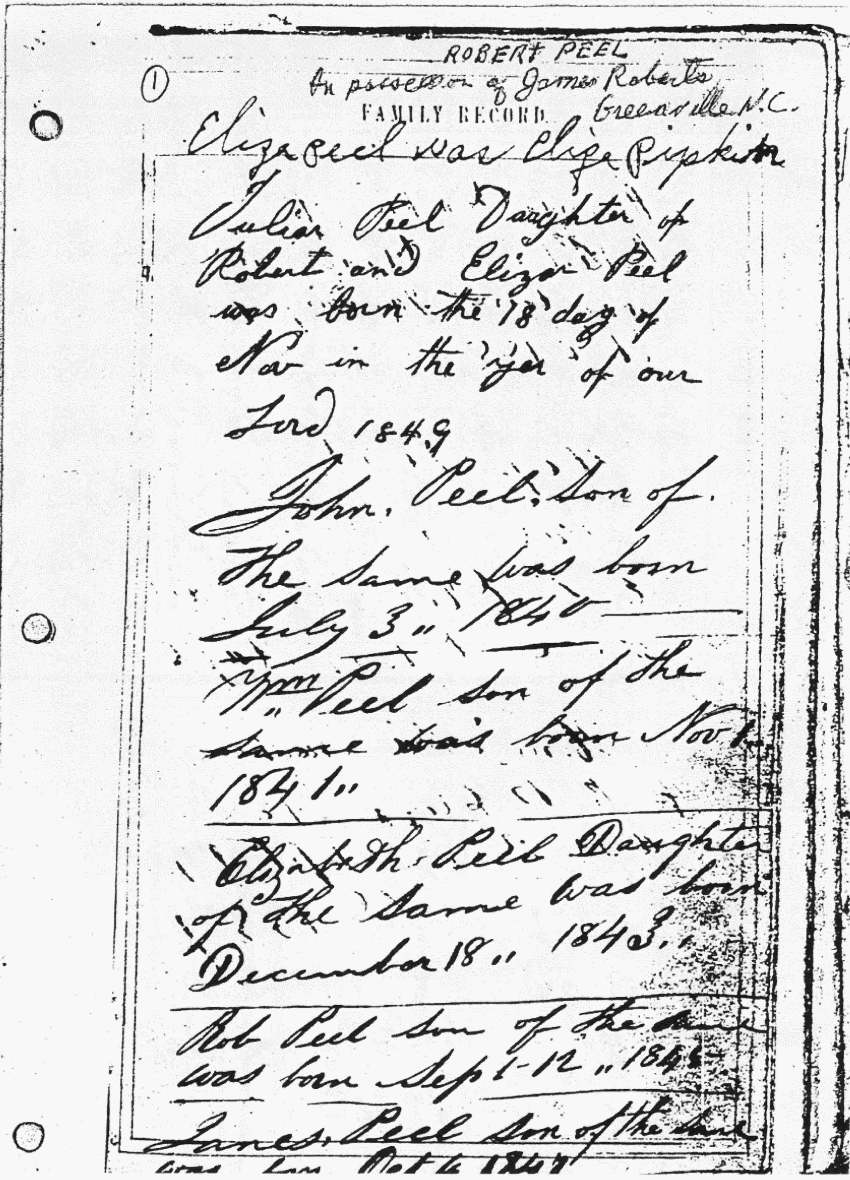 1
ROBERT PEEL
In possession of James Roberts
FAMILY RECORD Greenville N.C.
Eliza Peel was Eliza Pipkin
Julian Peel Daughter of
Robert and Eliza Peel
was born the 18 day of
Nov in the yer of our
Lord 1849
John. Peel. Son of.
the same was born
July 3 " 1840
Wm Peel son of the
same was born Nov 1
1841 "
Elizabeth. Peel Daughter
of the same was born
December 18 " 1843 "
Rob Peel son of the same
was born Sept-12 "
James. Peel son of the same
was born Oct 6